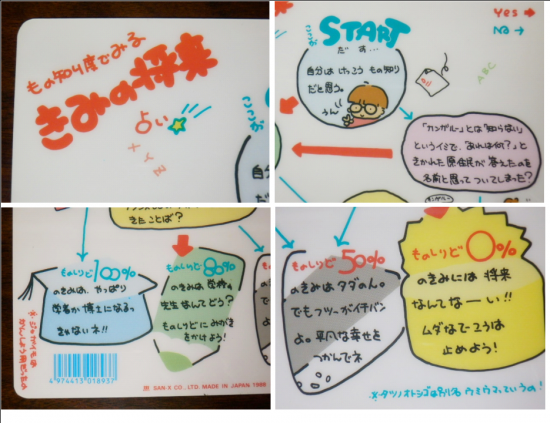 もの知り度でみる
きみの将来
占い
ここから
START
だす…
Yes →
No →
自分は けっこう もの知り
だと思う。
うん
ABC
「カンガルー」とは「知らない」
というイミで、「あれは何?」と
きかれた原住民が 答えたのを
名前と思って ついてしまった?
きたことば?
ものしりど100%
のきみは、やっぱり
学者か 博士になるっ
きゃないネ!!
4 974413 018937
SAN-X CO., LTD. MADE IN JAPAN 1988
ものしりど80%
のきみは 学校の
先生なんてどう?
ものしりどにみがき
をかけよう!
ものしりど50%
のきみは タダの人。
でもフツーがイチバン
よ。平凡な幸せを
つかんでネ
ものしりど0%
のきみには 将来
なんてなーい!!
ムダなてーこうは
止めよう!
※タツノオトシゴは別名 ウミウマっていうの!